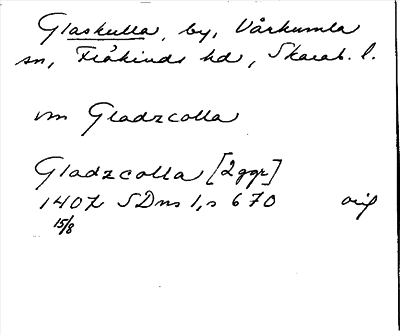 Glaskulla, by, Vårkumla
sn, Frökinds hd, Skarab. l.
vm Gladzcolla
Gladzcolla [2ggr]
1407 SDns 1, s 670 orig
15/8